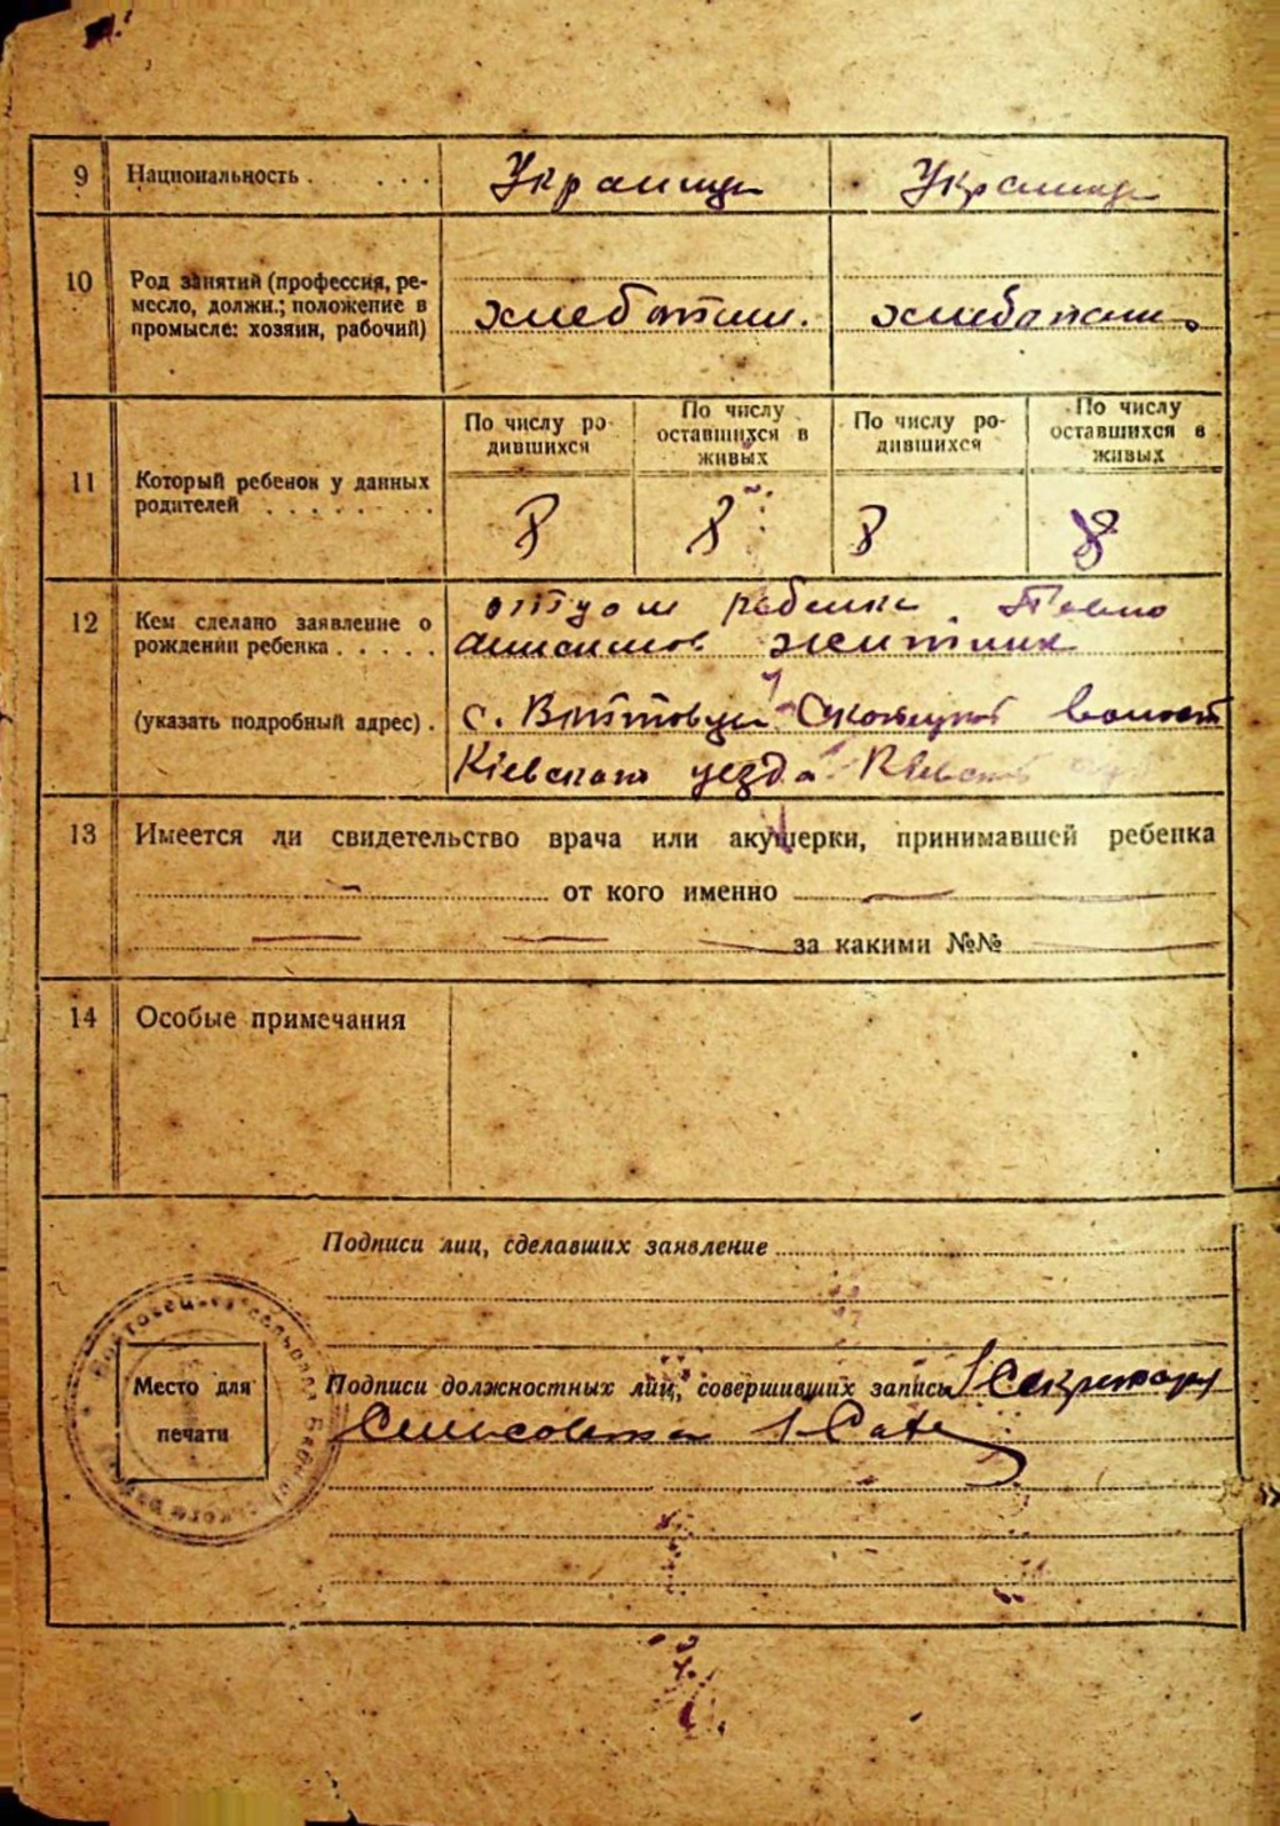 9 Национальность . . . . Украинцы Украинцы
10 Род занятий (профессия, ре-
месло, должн.; положение в
промысле: хозяин, рабочий)
хлебопаш. хлебопаш.
По числу ро-
дившихся
По числу
оставшихся в
живых
По числу ро-
дившихся
По числу
оставшихся в
живых
11 Который ребенок у данных
родителей . . . . . . . .
8 8 8 8
12 Кем сделано заявление о
рождении ребенка . . . . .
отцом ребенка
Житник
(указать подробный адрес) .
с. волости
Кіевского уезда
13 Имеется ли свидетельство врача или акушерки, принимавшей ребенка
от кого именно
за какими №№
14 Особые примечания
Подписи лиц, сделавших заявление
Подписи должностных лиц, совершивших запись Секретарь
Сельсовета
Место для
печати